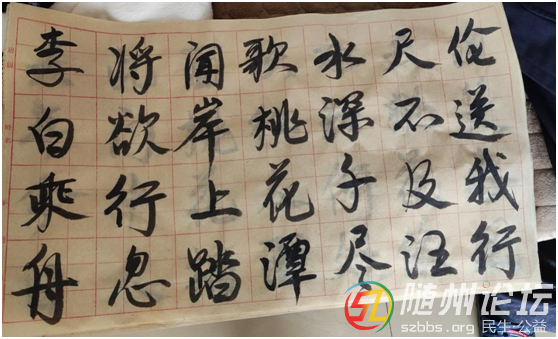 李白乘舟
将欲行忽
闻岸上踏
歌桃花潭
水深千尽
尺不及汪
伦送我行
随州论坛
szbbs.org 民生·公益